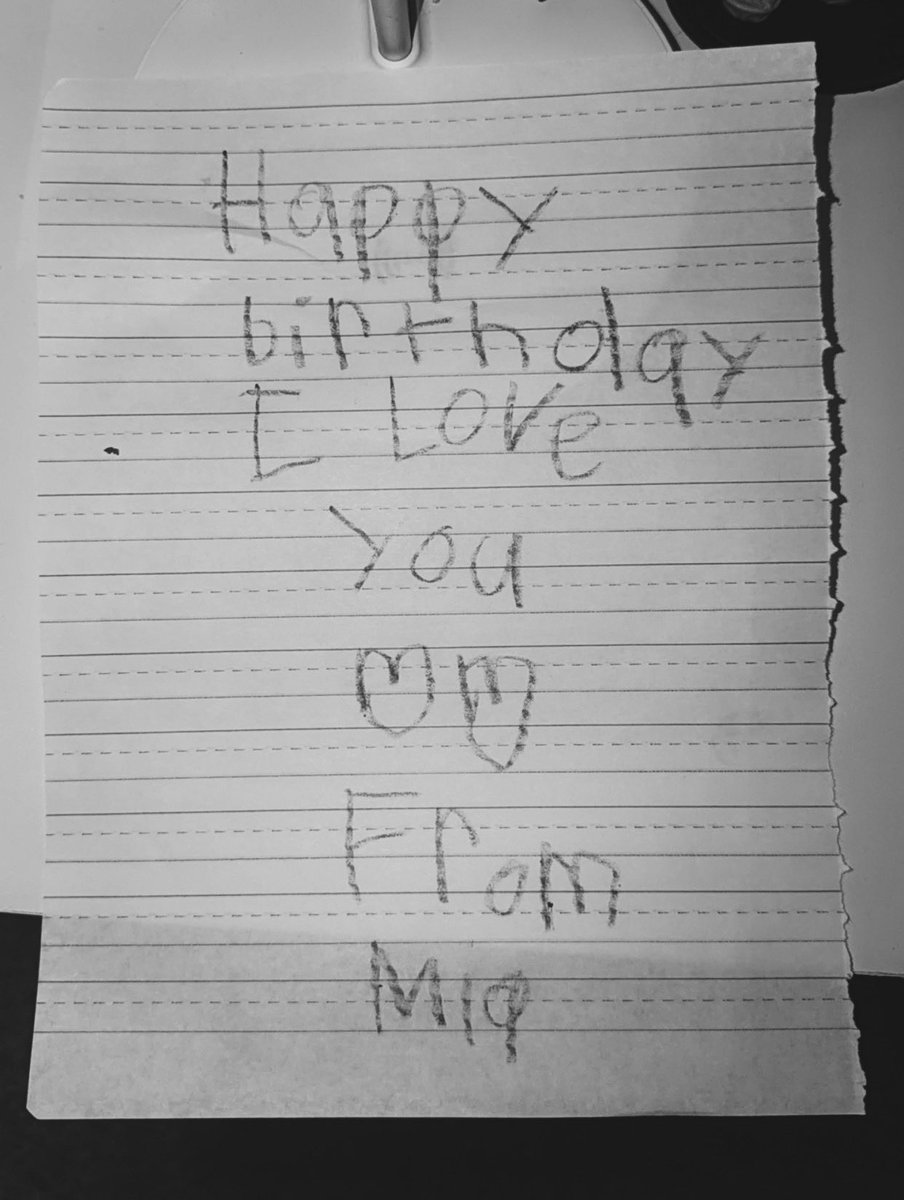 Happy
birthday
I Love
you
From
Mia